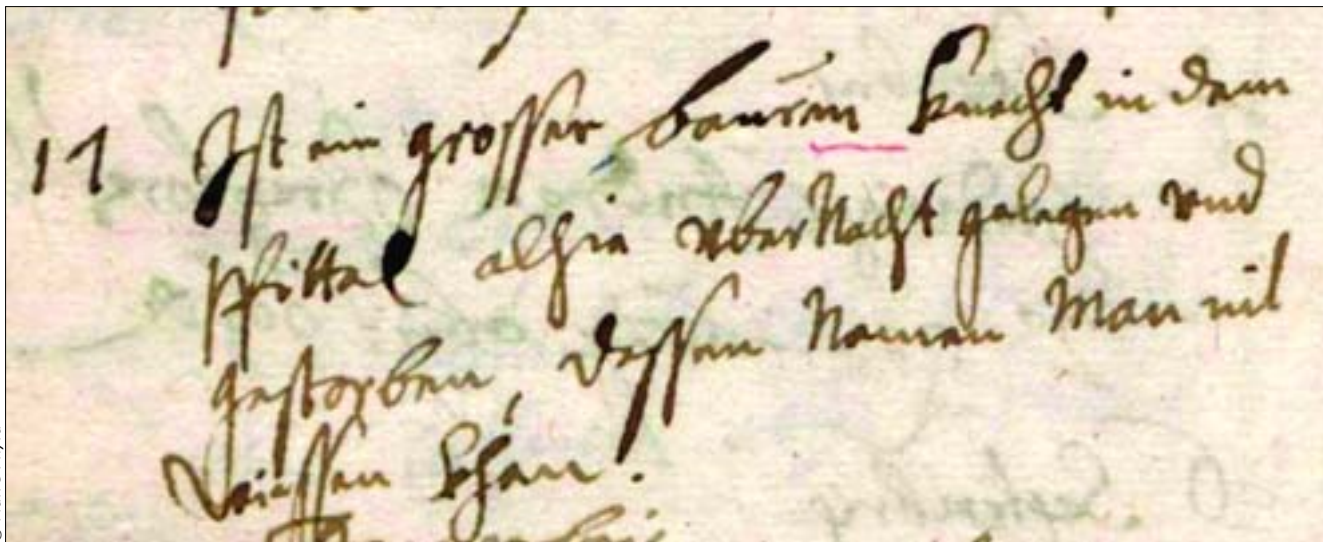 17 Ist ein grosser bauren knecht in dem
spittal alhie vber Nacht gelegen vnd
gestorben, dessen Namen Man nit
wissen khan.